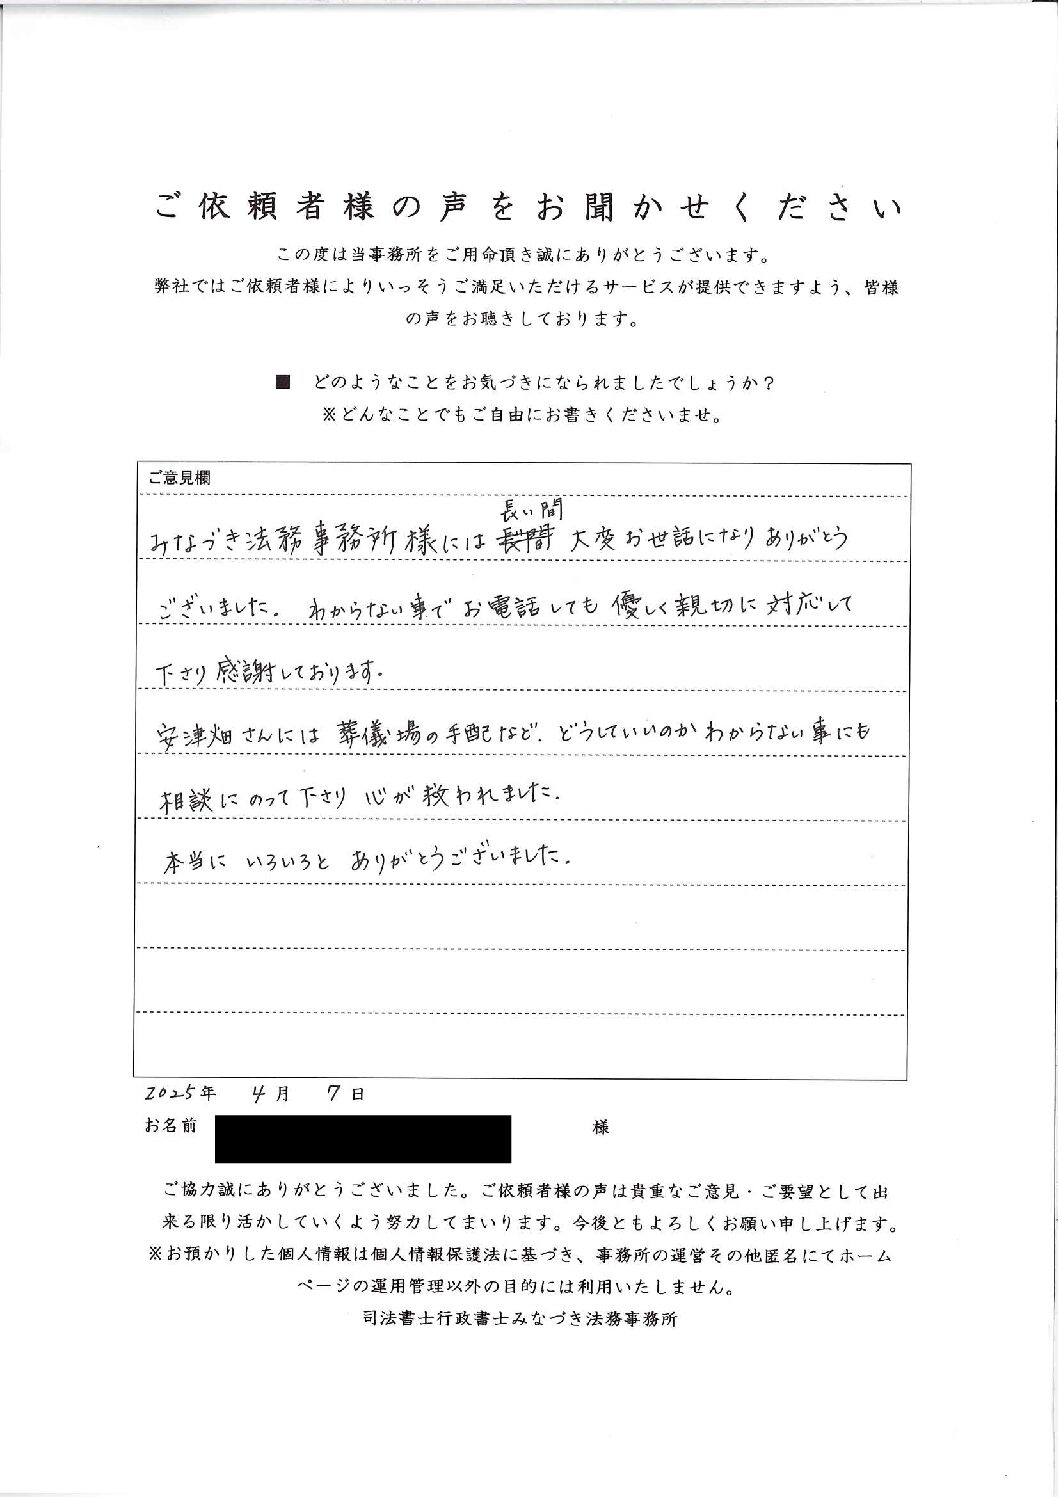 ご依頼者様の声をお聞かせください
この度は当事務所をご用命頂き誠にありがとうございます。
弊社ではご依頼者様によりいっそうご満足いただけるサービスが提供できますよう、皆様
の声をお聴きしております。
■ どのようなことをお気づきになられましたでしょうか？
※どんなことでもご自由にお書きくださいませ。
ご意見欄
長い間
みなづき法務事務所様には 大変お世話になりありがとう
ございました。わからない事でお電話しても優しく親切に対応して
下さり感謝しております。
安津畑さんには葬儀場の手配など、どうしていいのかわからない事にも
相談にのって下さり心が救われました。
本当にいろいろとありがとうございました。
2025年 4月 7日
お名前 様
ご協力誠にありがとうございました。ご依頼者様の声は貴重なご意見・ご要望として出
来る限り活かしていくよう努力してまいります。今後ともよろしくお願い申し上げます。
※お預かりした個人情報は個人情報保護法に基づき、事務所の運営その他匿名にてホーム
ページの運用管理以外の目的には利用いたしません。
司法書士行政書士みなづき法務事務所